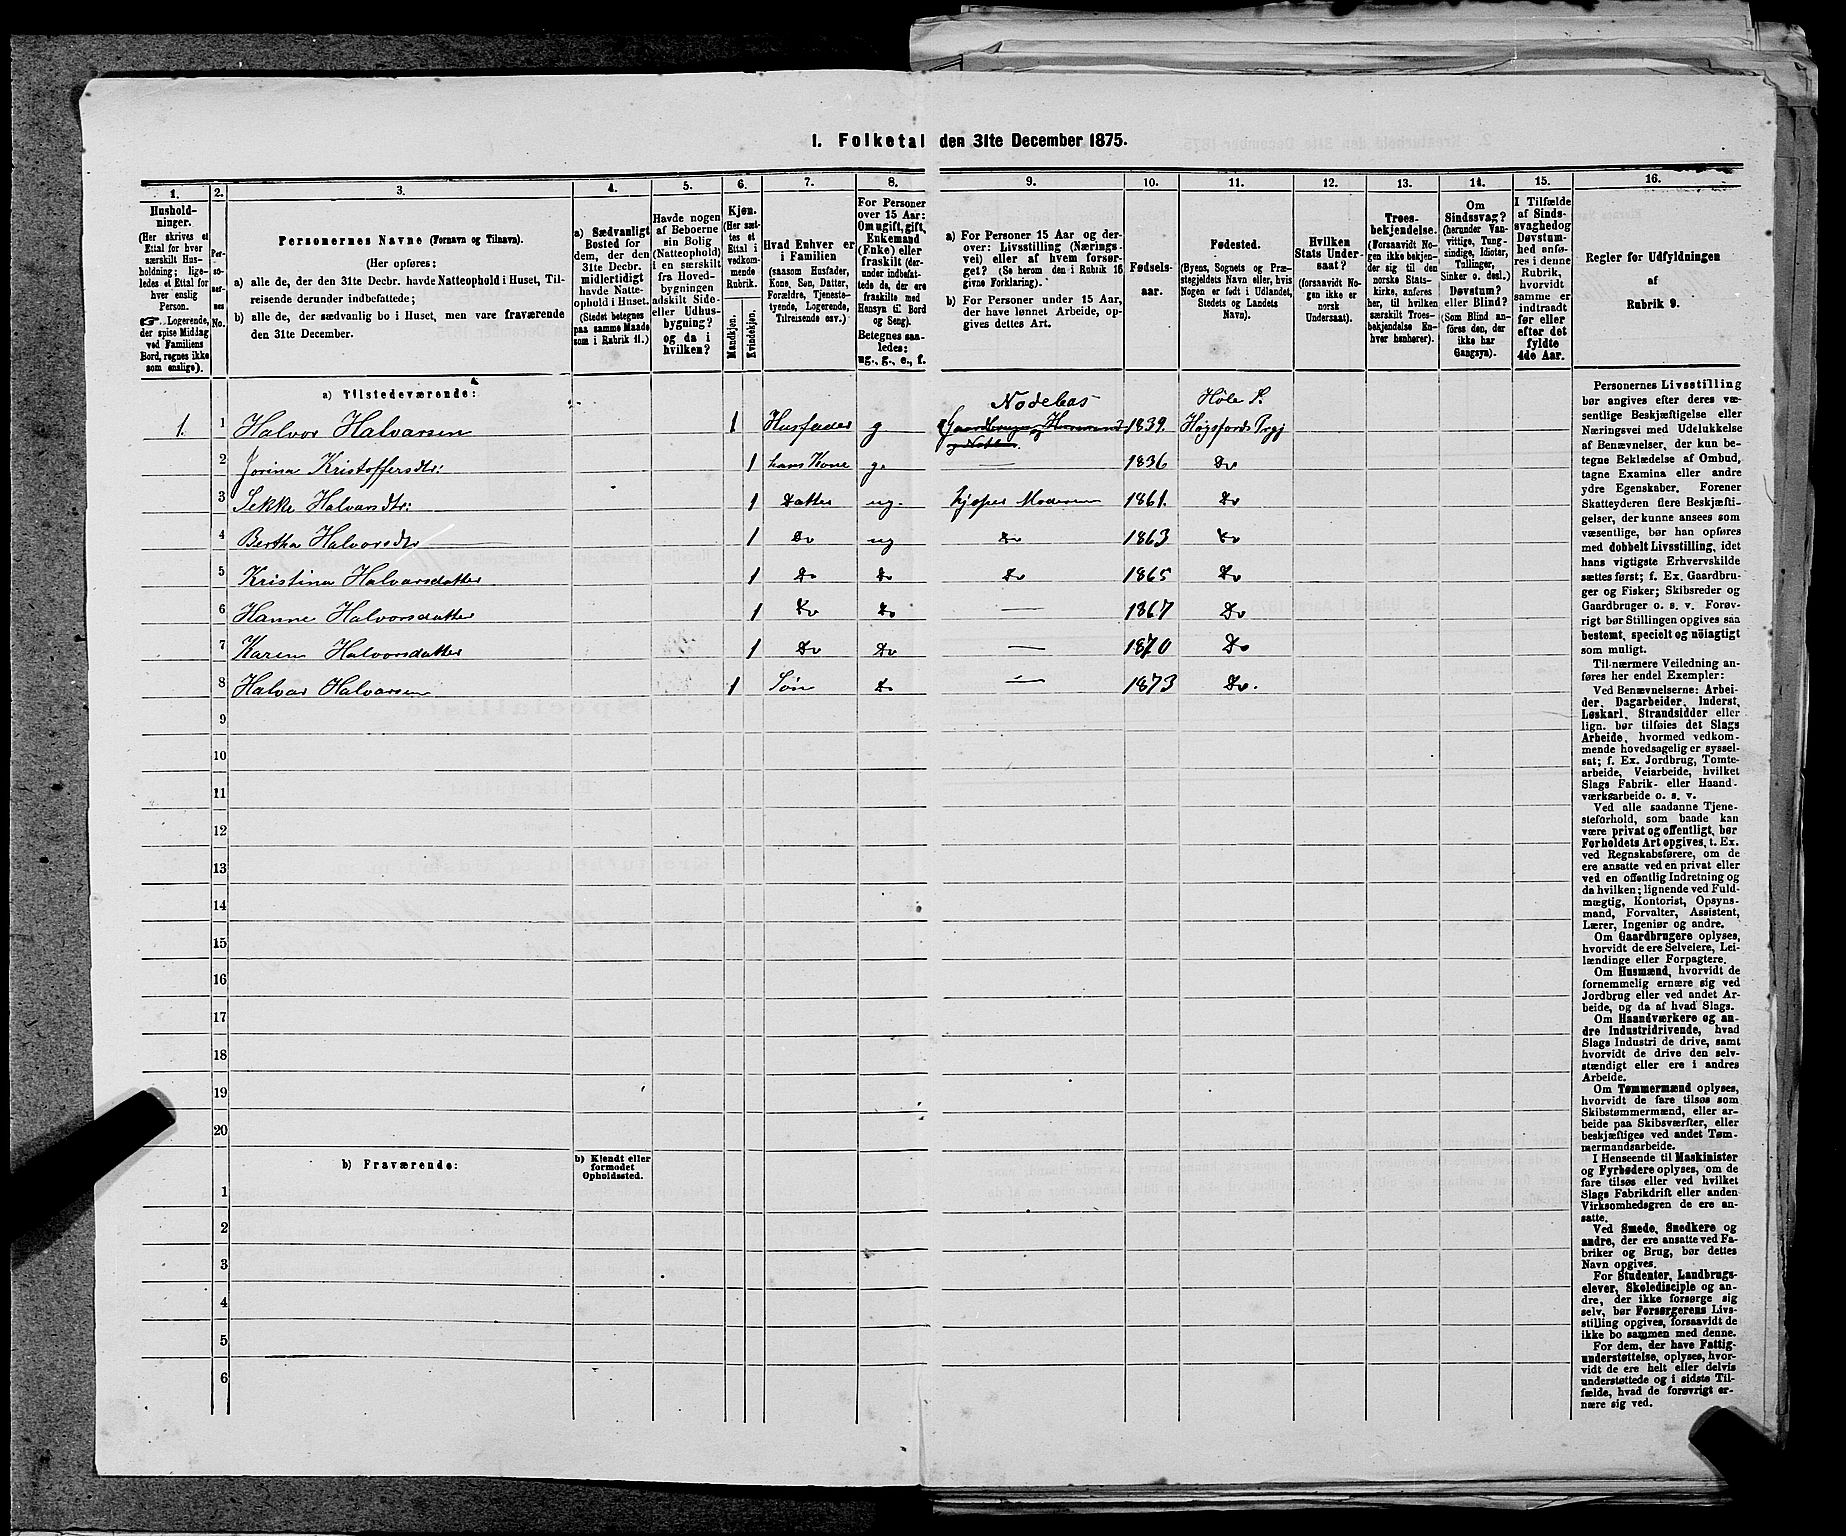 1. Folketal den 31te December 1875.
1. 2. 3. 4. 5. 6. 7. 8. 9. 10. 11. 12. 13. 14. 15. 16.
Hushold-
ninger.
(Her skrives et
Ettal for hver
særskilt Hus-
holdning; lige-
ledes et Ettal for
hver enslig
Person.
Logerende,
der spise Middag
ved Familiens
Bord, regnes ikke
som enslige).
Per-
so-
ner-
nes
No.
Personernes Navne (Fornavn og Tilnavn).
(Her opføres:
a) alle de, der den 31te Decbr. havde Natteophold i Huset, Til-
reisende derunder indbefattede;
b) alle de, der sædvanlig bo i Huset, men vare fraværende
den 31te December.
a) Sædvanligt
Bosted for
dem, der den
31te Decbr.
midlertidigt
havde Natte-
ophold i Huset.
(Stedet betegnes
paa samme Maade
som i Rubrik 11.)
Havde nogen
af Beboerne
sin Bolig
(Natteophold)
i en særskilt
fra Hoved-
bygningen
adskilt Side-
eller Udhus-
bygning?
og da i
hvilken?
Kjøn.
(Her sæt-
tes et
Ettal i
vedkom-
mende
Rubrik.
Mandkjøn.
Kvindekjøn.
Hvad Enhver er
i Familien
(saasom Husfader,
Kone, Søn, Datter,
Forældre, Tjeneste-
tyende, Logerende,
Tilreisende osv.)
For Personer
over 15 Aar:
Om ugift, gift,
Enkemand
(Enke) eller
fraskilt (der-
under indbefat-
tede de, der ere
fraskilte med
Hensyn til Bord
og Seng).
Betegnes saa-
ledes:
ug., g., e., f.
a) For Personer 15 Aar og der-
over: Livsstilling (Nærings-
vei) eller af hvem forsør-
get? (Se herom den i Rubrik 16
givne Forklaring).
b) For Personer under 15 Aar,
der have lønnet Arbeide, op-
gives dettes Art.
Fødsels-
aar.
Fødested.
(Byens, Sognets og Præ-
stegjeldets Navn eller, hvis
Nogen er født i Udlandet,
Stedets og Landets
Navn).
Hvilken
Stats Under-
saat?
(forsaavidt No-
gen ikke er
norsk
Undersaat).
Troes-
bekjendelse.
(Forsaavidt No-
gen ikke bekjen-
der sig til den
norske Stats-
kirke, anføres
her, til hvilken
særskilt Troes-
bekjendelse En-
hver henhører).
Om
Sindssvag?
(herunder Van-
vittige, Tung-
sindige, Idioter,
Tullinger,
Sinker o. desl.)
Døvstum?
eller Blind?
(Som Blind an-
føres den, der
ikke har
Gangsyn).
I Tilfælde
af Sinds-
svaghed og
Døvstum-
hed anfø-
res i denne
Rubrik,
hvorvidt
samme er
indtraadt
før eller
efter det
fyldte
4de Aar.
Regler for Udfyldningen
af
Rubrik 9.
a) Tilstedeværende:
Hole S.
1. 1 Halvor Halvorsen 1 Husfader g 1839. Prgj
2 Jorina Kristoffersdtr: 1 hans Kone g. — 1836 Do
3 Sekke Halvorsdtr: 1 Datter ug. hjelper Moderen 1861. Do
4 Bertha Halvorsdtr 1 Do ug Do 1863 Do
5 Kristina Halvorsdatter 1 Do Do Do 1865 Do
6 Hanne Halvorsdatter 1 Do Do — 1867 Do
7 Karen Halvorsdatter 1 Do Do — 1870 Do
8 Halvor Halvorsen 1 Søn Do — 1873 Do.
9
10
11
12
13
14
15
16
17
18
19
20
b) Fraværende:
b) Kjendt eller
formodet
Opholdssted.
1
2
3
4
5
6
Personernes Livsstilling
bør angives efter deres væ-
sentlige Beskjæftigelse eller
Næringsvei med Udelukkelse
af Benævnelser, der kun be-
tegne Beklædelse af Ombud,
tagne Examina eller andre
ydre Egenskaber. Forener
Skatteyderen flere Beskjæfti-
gelser, der kunne ansees som
væsentlige, bør han opføres
med dobbelt Livsstilling, idet
hans vigtigste Erhvervskilde
sættes først; f. Ex. Gaardbru-
ger og Fisker; Skibsreder og
Gaardbruger o. s. v. Forøv-
rigt bør Stillingen opgives saa
bestemt, specielt og nöiagtigt
som muligt.
Til nærmere Veiledning an-
føres her endel Exempler:
Ved Benævnelserne: Arbei-
der, Dagarbeider, Inderst,
Løskarl, Strandsidder eller
lign. bør tilføies det Slags
Arbeide, hvormed vedkom-
mende hovedsagelig er syssel-
sat; f. Ex. Jordbrug, Tomte-
arbeide, Veiarbeide, hvilket
Slags Fabrik- eller Haand-
værksarbeide o. s. v.
Ved alle saadanne Tjene-
steforhold, som baade kan
være privat og offentligt, bør
Forholdets Art opgives, t. Ex.
ved Regnskabsførere, om de
ere ansatte ved en privat eller
ved en offentlig Indretning og
da hvilken; lignende ved Fuld-
mægtig, Kontorist, Opsyns-
mand, Forvalter, Assistent,
Lærer, Ingeniør og andre.
Om Gaardbrugere oplyses,
hvorvidt de ere Selveiere, Lei-
lændinge eller Forpagtere.
Om Husmænd, hvorvidt de
fornemmelig ernære sig ved
Jordbrug eller ved andet Ar-
beide, og da af hvad Slags.
Om Haandværkere og an-
dre Industridrivende, hvad
Slags Industri de drive, samt
hvorvidt de drive den selv-
stændigt eller ere i andres
Arbeide.
Om Tømmermænd oplyses,
hvorvidt de fare tilsøs som
Skibstømmermænd, eller ar-
beide paa Skibsværfter, eller
beskjæftiges ved andet Tøm-
mermandsarbeide.
I Henseende til Maskinister
og Fyrbødere oplyses, om de
fare tilsøs eller ved hvilket
Slags Fabrikdrift eller anden
Virksomhedsgren de ere an-
satte.
Ved Smede, Snedkere og
andre, der ere ansatte ved Fa-
briker og Brug, bør dettes
Navn opgives.
For Studenter, Landbrugs-
elever, Skoledisciple og an-
dre, der ikke forsørge sig
selv, bør Forsørgerens Livs-
stilling opgives, forsaavidt de
ikke bo sammen med denne.
For dem, der have Fattig-
understøttelse, oplyses, hvor-
vidt de ere helt eller delvis
understøttede og i sidste Til-
fælde, hvad de forøvrigt er-
nære sig ved.